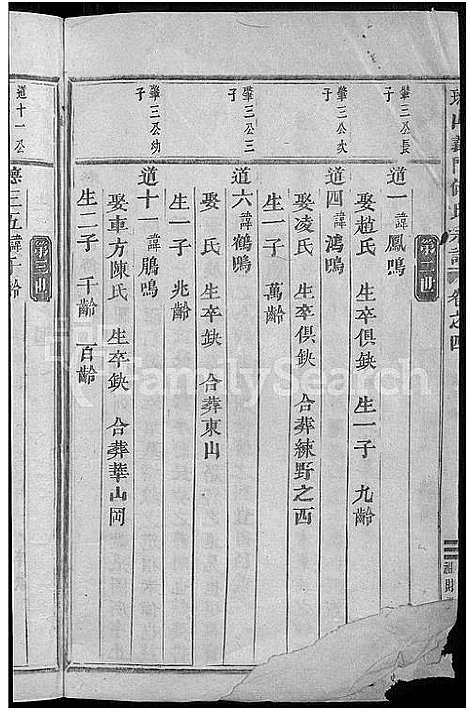 氏宗譜 卷之四
肇三公長子
道一 諱鳳鳴
娶趙氏 生卒俱缺 生一子 九齡
肇三公次子
道四 諱鴻鳴
娶凌氏 生卒俱缺 合葬練野之西
生一子 萬齡
肇三公三子
道六 諱鶴鳴
娶 氏 生卒缺 合葬東山
生一子 兆齡
肇三公幼子
道十一 諱鵬鳴
娶車方陳氏 生卒缺 合葬華山岡
生二子 千齡 百齡
道十一公
德三五 諱千齡
FamilySearch